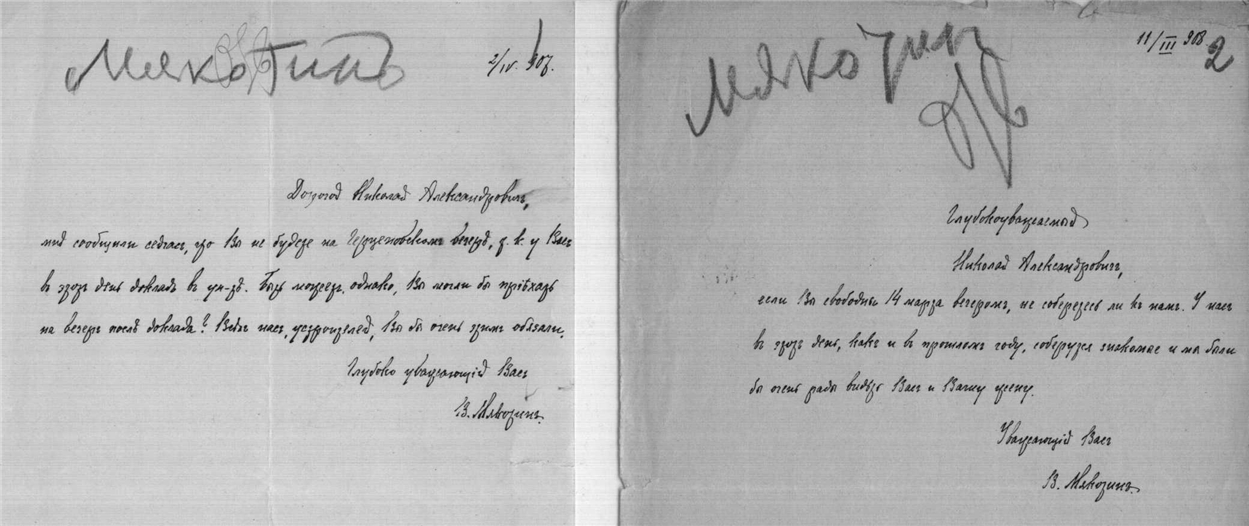 Мякотинъ
2/IV. 907.
Дорогой Николай Александровичъ,
мнѣ сообщили сейчасъ, что Вы не будете на Герценовскомъ вечерѣ, т. к. у Васъ
въ этотъ день докладъ въ ун-тѣ. Быть можетъ, однако, Вы могли бы пріѣхать
на вечеръ послѣ доклада? Всѣхъ насъ, устроителей, Вы бы очень этимъ обязали.
Глубоко уважающій Васъ
В. Мякотинъ.
11/III 908.
2
Мякотин
Глубокоуважаемый
Николай Александровичъ,
если Вы свободны 14 марта вечеромъ, не соберетесь ли къ намъ. У насъ
въ этотъ день, какъ и въ прошломъ году, соберутся знакомые и мы были
бы очень рады видѣть Васъ и Вашу жену.
Уважающій Васъ
В. Мякотинъ.